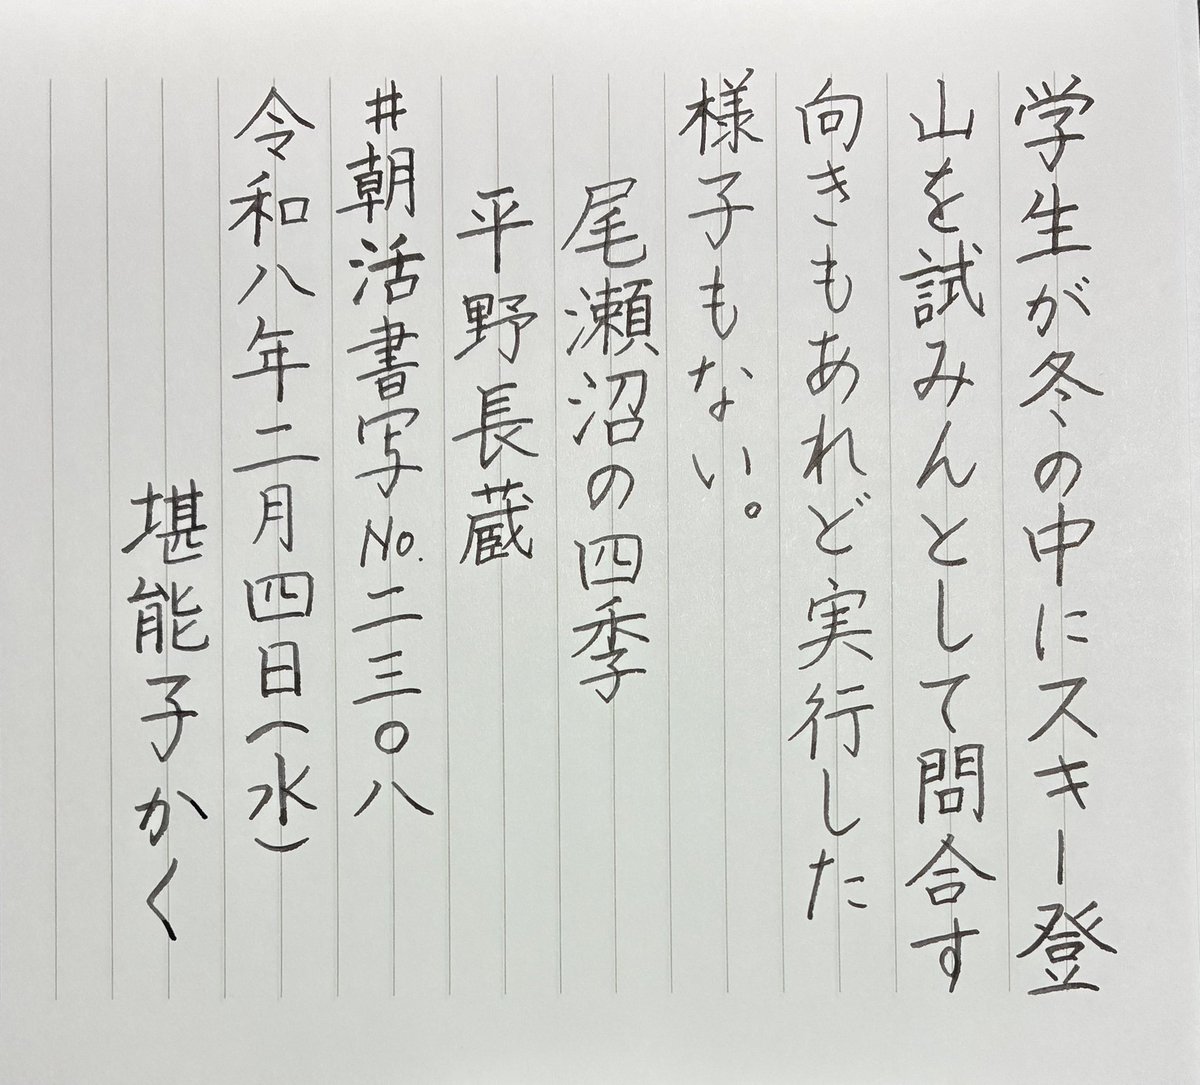 学生が冬の中にスキー登
山を試みんとして問合す
向きもあれど実行した
様子もない。
尾瀬沼の四季
平野長蔵
#朝活書写No.二三〇八
令和八年二月四日(水)
堪能子かく